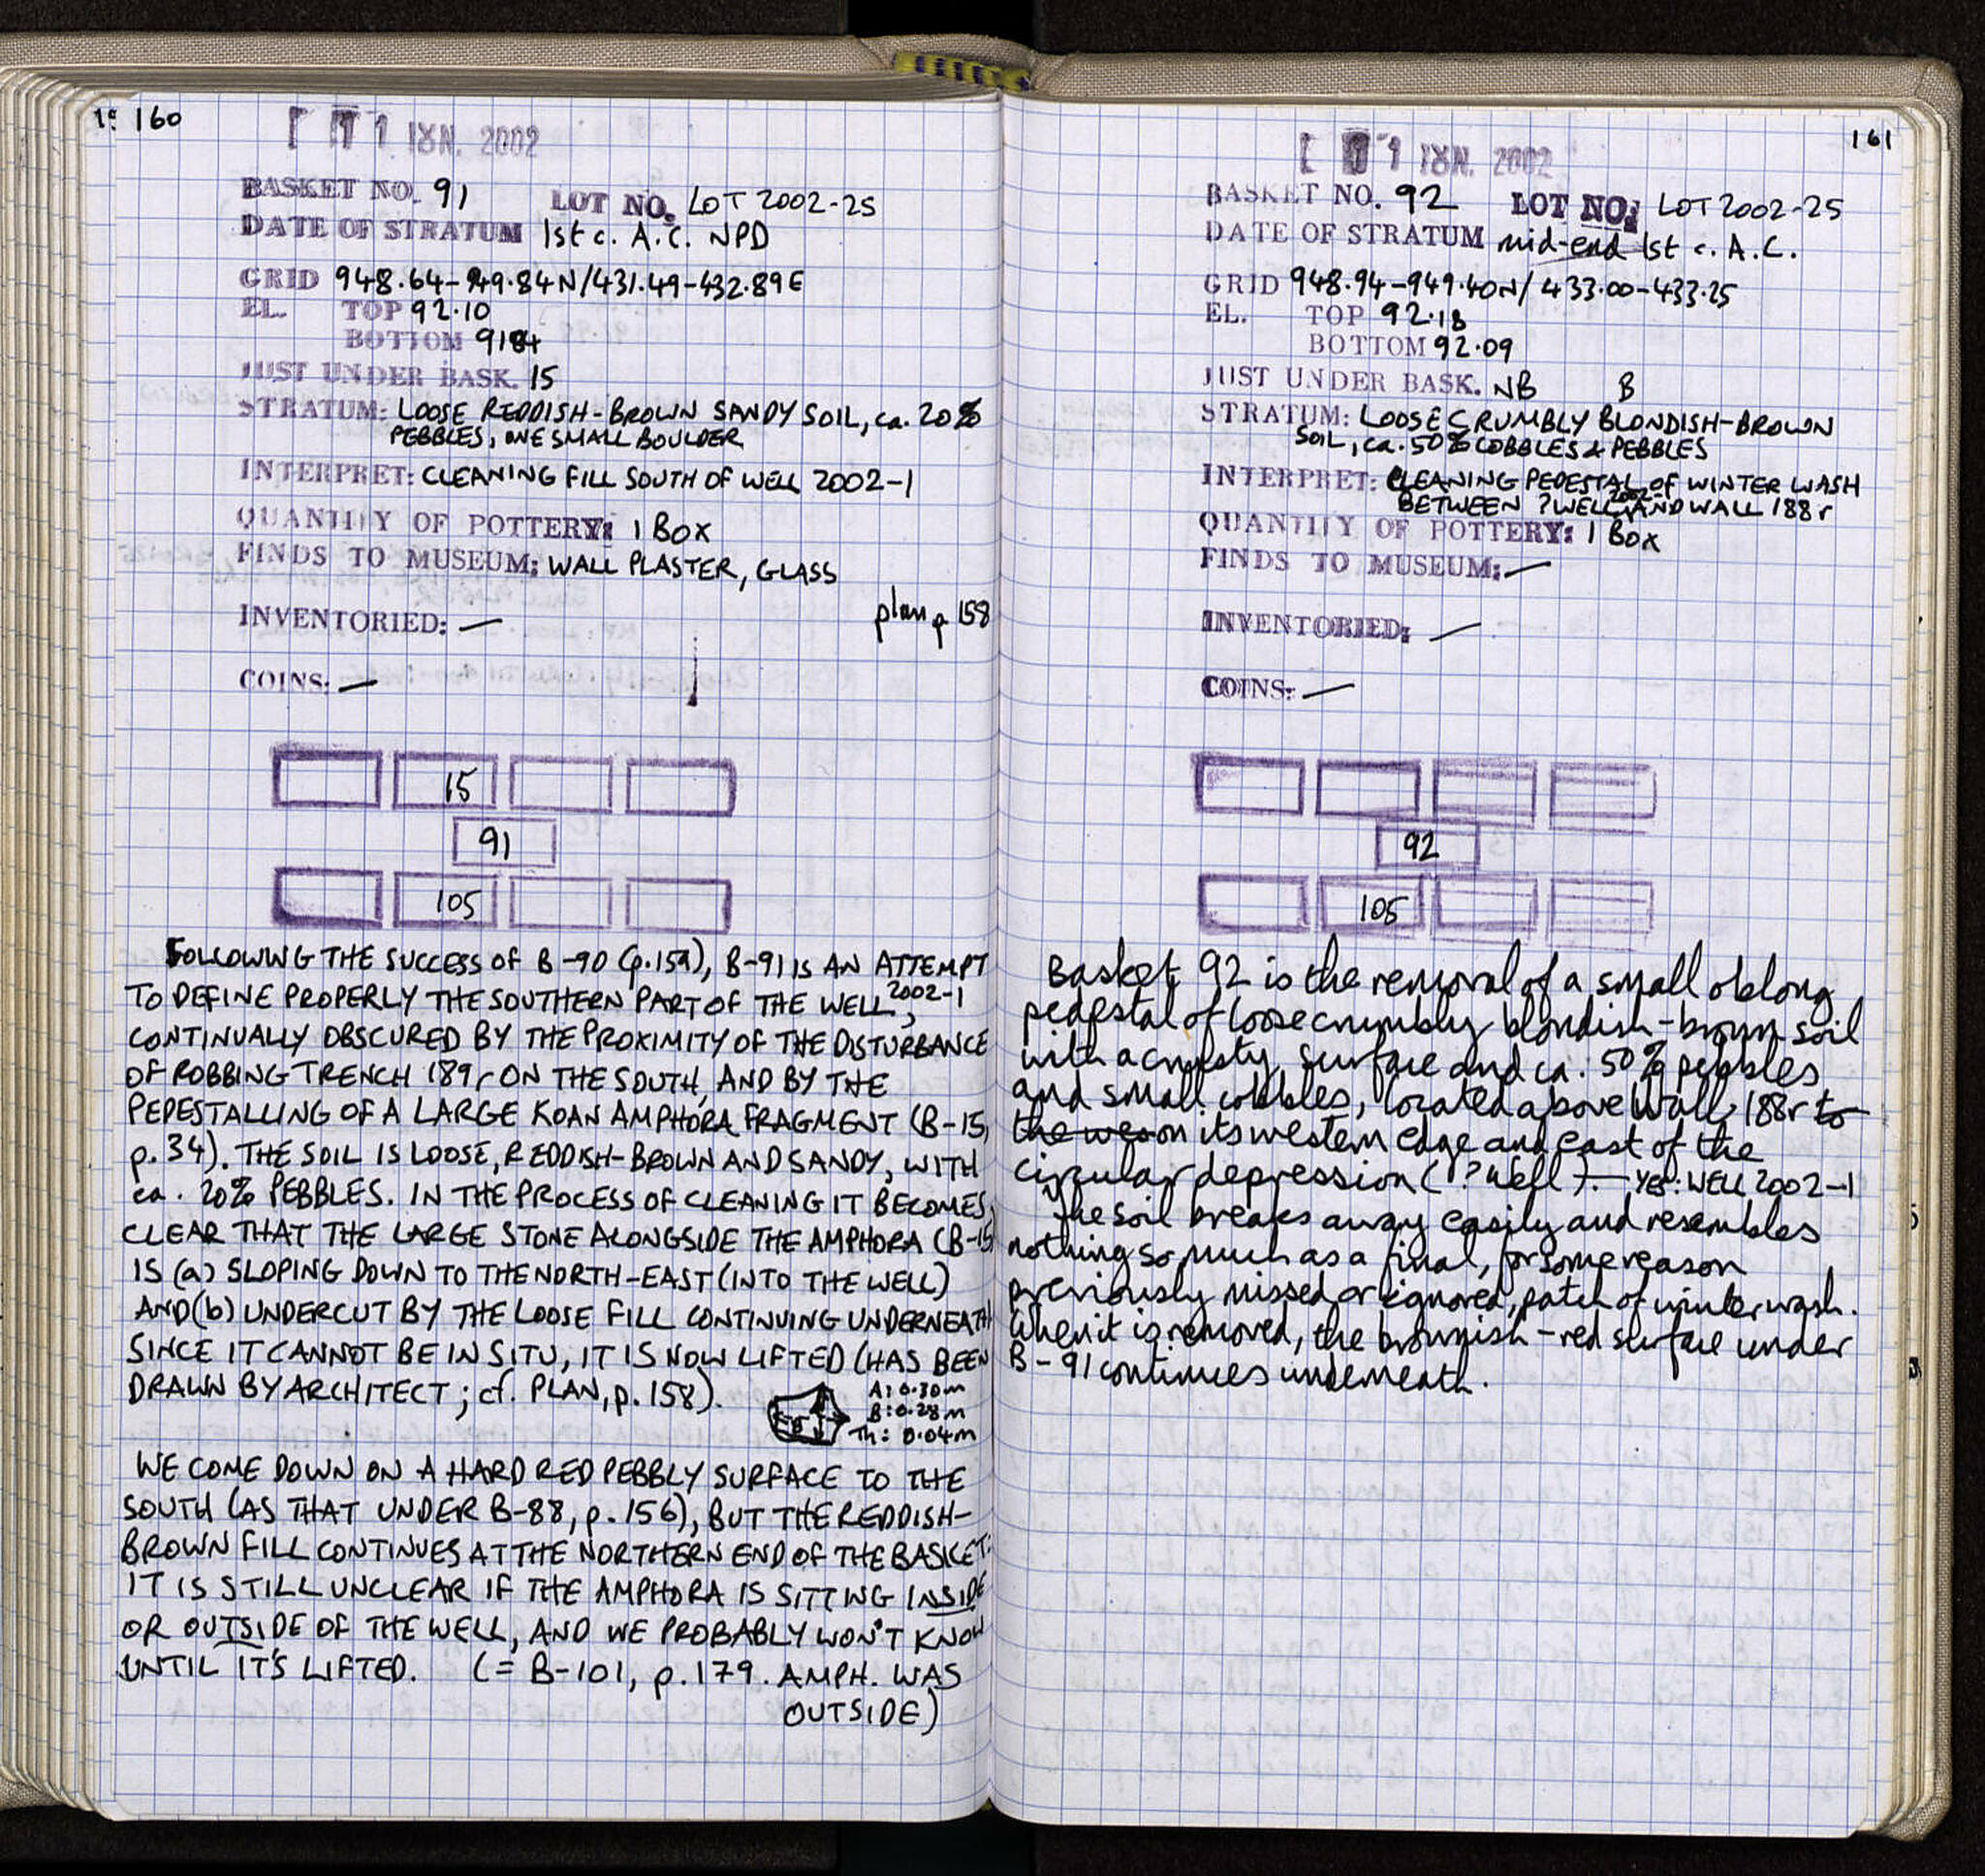 160
1 JUN. 2002
BASKET NO. 91 LOT NO. LOT 2002-25
DATE OF STRATUM 1st c. A.C. NPD
GRID 948.64-949.84N/431.49-432.89E
EL. TOP 92.10
BOTTOM 9184
JUST UNDER BASK. 15
STRATUM: LOOSE REDDISH-BROWN SANDY SOIL, ca. 20%
PEBBLES, ONE SMALL BOULDER
INTERPRET: CLEANING FILL SOUTH OF WELL 2002-1
QUANTITY OF POTTERY: 1 BOX
FINDS TO MUSEUM: WALL PLASTER, GLASS
plan p 158
INVENTORIED: —
COINS: —
15
91
105
FOLLOWING THE SUCCESS OF B-90 (p.159), B-91 IS AN ATTEMPT
TO DEFINE PROPERLY THE SOUTHERN PART OF THE WELL 2002-1,
CONTINUALLY OBSCURED BY THE PROXIMITY OF THE DISTURBANCE
OF ROBBING TRENCH 189r ON THE SOUTH, AND BY THE
PEDESTALLING OF A LARGE KOAN AMPHORA FRAGMENT (B-15,
p. 34). THE SOIL IS LOOSE, REDDISH-BROWN AND SANDY, WITH
ca. 20% PEBBLES. IN THE PROCESS OF CLEANING IT BECOMES
CLEAR THAT THE LARGE STONE ALONGSIDE THE AMPHORA (B-15)
IS (a) SLOPING DOWN TO THE NORTH-EAST (INTO THE WELL)
AND (b) UNDERCUT BY THE LOOSE FILL CONTINUING UNDERNEATH
SINCE IT CANNOT BE IN SITU, IT IS NOW LIFTED (HAS BEEN
DRAWN BY ARCHITECT; cf. PLAN, p.158).
A: 0.30m
B: 0.28m
Th: 0.04m
WE COME DOWN ON A HARD RED PEBBLY SURFACE TO THE
SOUTH (AS THAT UNDER B-88, p.156), BUT THE REDDISH-
BROWN FILL CONTINUES AT THE NORTHERN END OF THE BASKET.
IT IS STILL UNCLEAR IF THE AMPHORA IS SITTING INSIDE
OR OUTSIDE OF THE WELL, AND WE PROBABLY WON'T KNOW
UNTIL IT'S LIFTED. (= B-101, p.179. AMPH. WAS
OUTSIDE)
161
1 JUN. 2002
BASKET NO. 92 LOT NO. LOT 2002-25
DATE OF STRATUM mid-end 1st c. A.C.
GRID 948.94-949.40N/ 433.00-433.25
EL. TOP 92.18
BOTTOM 92.09
JUST UNDER BASK. NB B
STRATUM: LOOSE CRUMBLY BLONDISH-BROWN
SOIL, ca. 50% COBBLES & PEBBLES
INTERPRET: CLEANING PEDESTAL OF WINTER WASH
BETWEEN ?WELL 2002- AND WALL 188r
QUANTITY OF POTTERY: 1 BOX
FINDS TO MUSEUM: —
INVENTORIED: —
COINS: —
92
105
Basket 92 is the removal of a small oblong
pedestal of loose crumbly blondish-brown soil
with a crusty surface and ca. 50% pebbles
and small cobbles, located above Wall 188r to
the wes on its western edge and east of the
circular depression (?Well). — YES: WELL 2002-1
The soil breaks away easily and resembles
nothing so much as a final, for some reason
previously missed or ignored, patch of winter wash.
When it is removed, the brownish-red surface under
B-91 continues underneath.